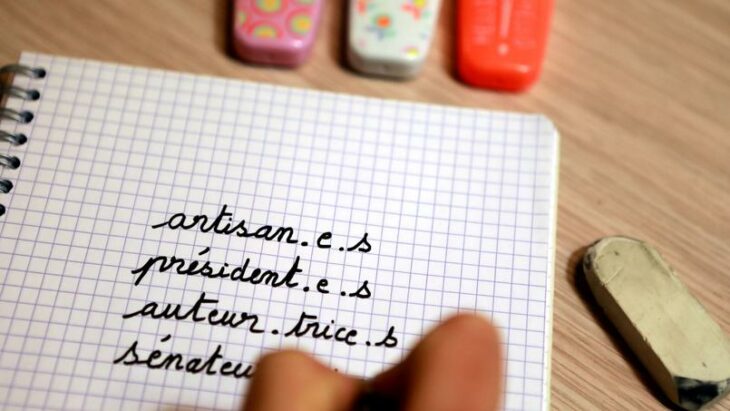 artisan.e.s
président.e.s
auteur.trice.s